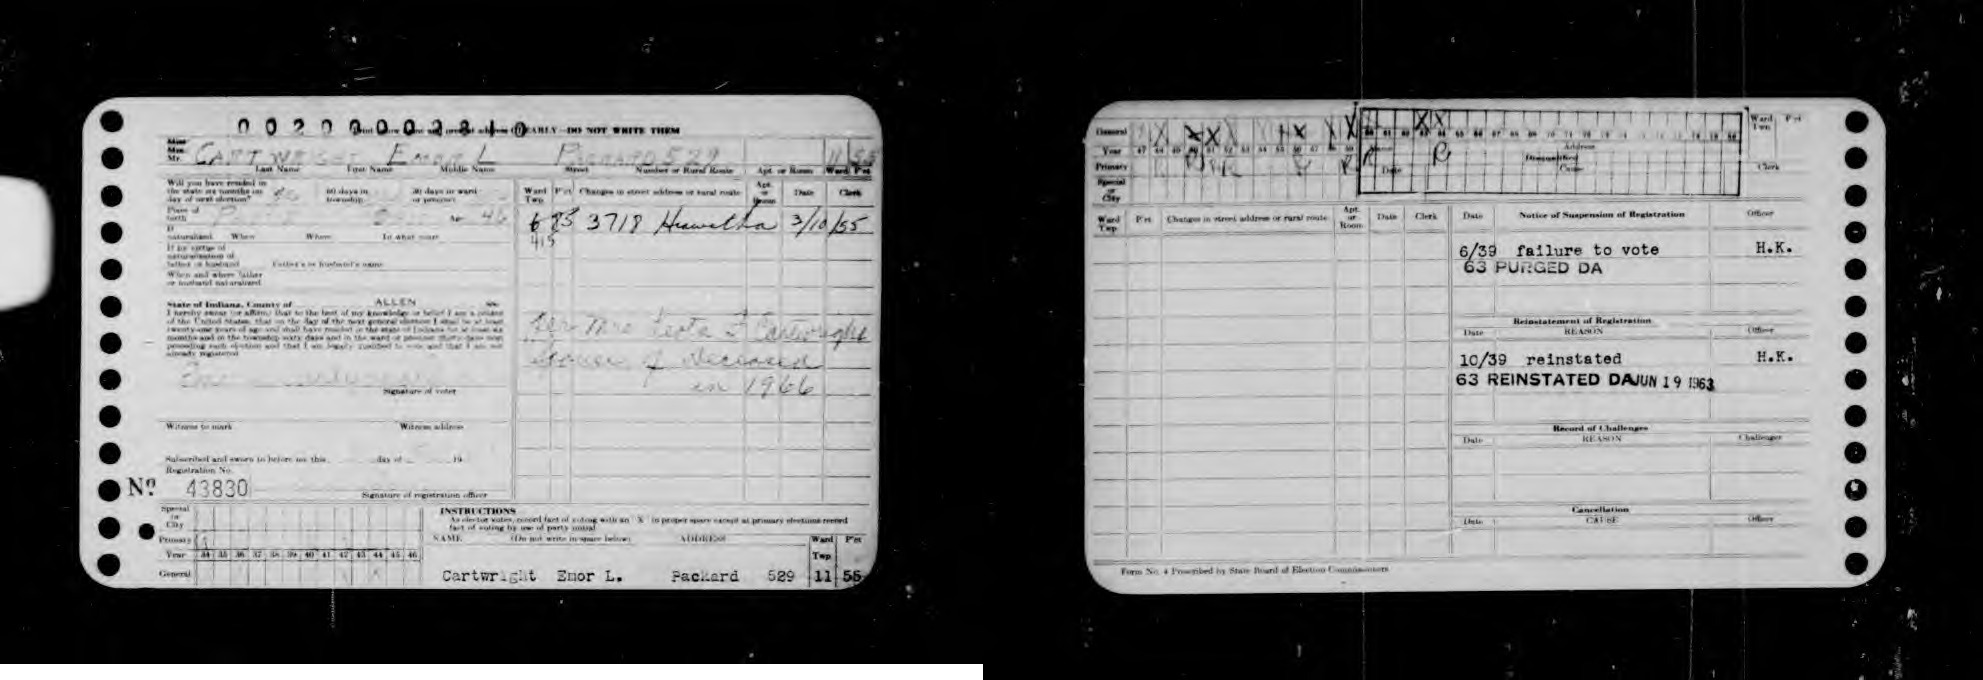 00200002810
Print Your Name and present address CLEARLY—DO NOT WRITE THEM
Miss
Mrs.
Mr. CARTWRIGHT EMOR L PACKARD 529 11 55
Last Name First Name Middle Name Street Number or Rural Route Apt. or Room Ward Pct
Will you have resided in
the state six months on
day of next election?
60 days in
township
30 days in ward
or precinct
Place of
birth
Age 46
If
naturalized. When Where In what court
If by virtue of
naturalization of
father or husband Father's or husband's name
When and where father
or husband naturalized
State of Indiana, County of ALLEN ss:
I hereby swear (or affirm) that to the best of my knowledge or belief I am a citizen
of the United States, that on the day of the next general election I shall be at least
twenty-one years of age and shall have resided in the state of Indiana for at least six
months and in the township sixty days and in the ward or precinct thirty days next
preceding such election and that I am legally qualified to vote and that I am not
already registered
Signature of voter
Witness to mark Witness address
Subscribed and sworn to before me this day of 19
Registration No.
No 43830
Signature of registration officer
Ward
Twp Pct Changes in street address or rural route Apt.
or
Room Date Clerk
6 85 3718 Hiawatha 3/10/55
415
Mrs Leota I Cartwright
spouse of deceased
in 1966
Special
or
City
Primary
Year 34 35 36 37 38 39 40 41 42 43 44 45 46
General X
INSTRUCTIONS
As elector votes, record fact of voting with an "X" in proper space except at primary elections record
fact of voting by use of party initial
NAME (Do not write in space below) ADDRESS Ward
Twp Pct
Cartwright Emor L. Packard 529 11 55
General X X X X X X X X
Year 47 48 49 50 51 52 53 54 55 56 57 58 59 60 61 62 63 64 65 66 67 68 69 70 71 72 73 74 75 76
Primary R R R R R
Special
or
City
Address
Disqualified
Date Cause Clerk
Ward
Twn Pct
Ward
Twp Pct Changes in street address or rural route Apt.
or
Room Date Clerk
Date Notice of Suspension of Registration Officer
6/39 failure to vote H.K.
63 PURGED DA
Reinstatement of Registration
Date REASON Officer
10/39 reinstated H.K.
63 REINSTATED DA JUN 19 1963
Record of Challenges
Date REASON Challenger
Cancellation
Date CAUSE Officer
Form No. 4 Prescribed by State Board of Election Commissioners